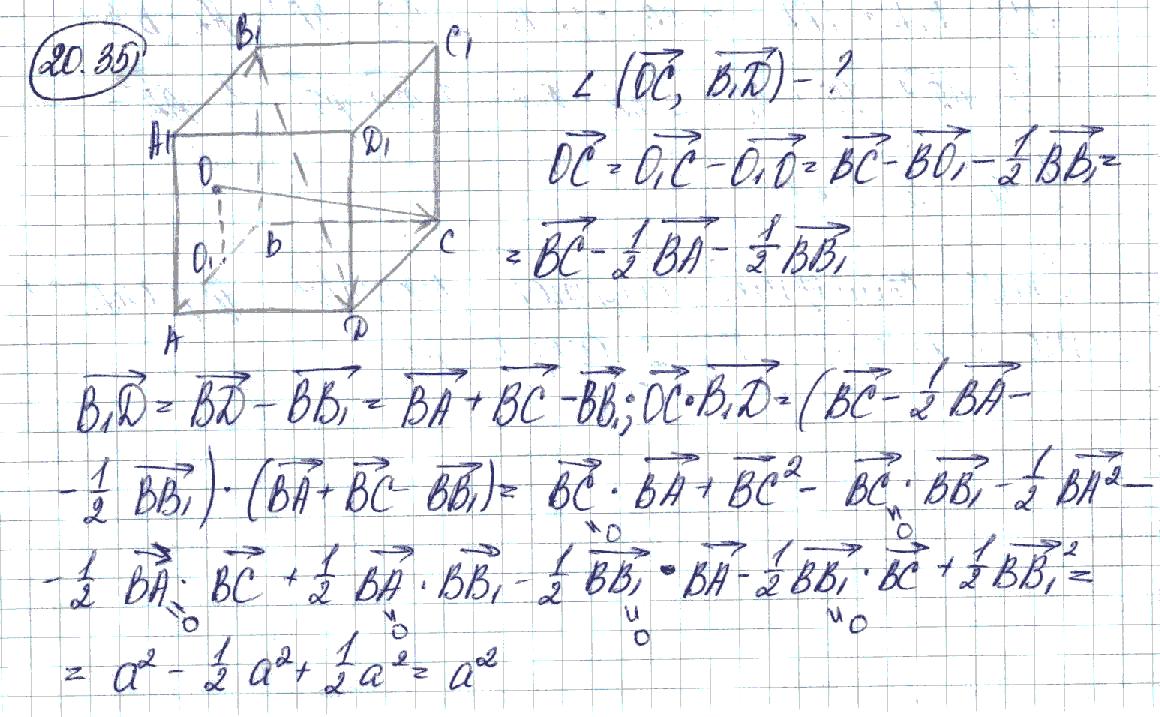 20.35
B₁ C₁
A₁ D₁
O
B C
O₁
A D
∠ (OC⃗, B₁D⃗) – ?
OC⃗ = O₁C⃗ – O₁O⃗ = BC⃗ – BO₁⃗ – 1/2 BB₁⃗ =
= BC⃗ – 1/2 BA⃗ – 1/2 BB₁⃗
B₁D⃗ = BD⃗ – BB₁⃗ = BA⃗ + BC⃗ – BB₁⃗; OC⃗ · B₁D⃗ = (BC⃗ – 1/2 BA⃗ –
– 1/2 BB₁⃗) · (BA⃗ + BC⃗ – BB₁⃗) = BC⃗ · BA⃗ + BC⃗² – BC⃗ · BB₁⃗ – 1/2 BA⃗² –
=0 =0
– 1/2 BA⃗ · BC⃗ + 1/2 BA⃗ · BB₁⃗ – 1/2 BB₁⃗ · BA⃗ – 1/2 BB₁⃗ · BC⃗ + 1/2 BB₁⃗² =
=0 =0 =0 =0
= a² – 1/2 a² + 1/2 a² = a²